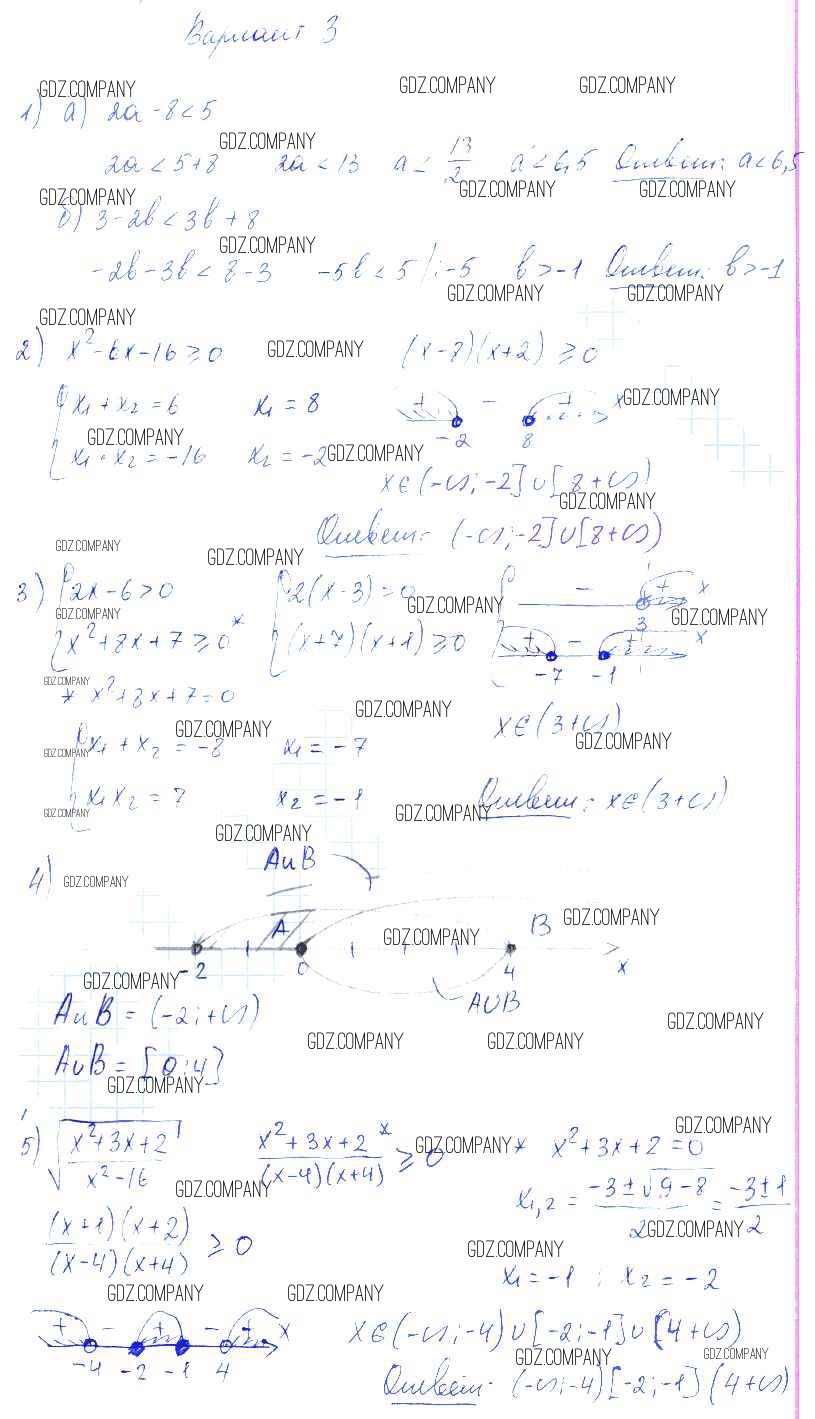 Вариант 3
GDZ.COMPANY GDZ.COMPANY GDZ.COMPANY
1) а) 2a - 8 < 5
GDZ.COMPANY
2a < 5+8 2a < 13 a < 13/2 a < 6,5 Ответ: a < 6,5
GDZ.COMPANY GDZ.COMPANY GDZ.COMPANY
б) 3 - 2b < 3b + 8
GDZ.COMPANY
-2b - 3b < 8 - 3 -5b < 5 | : -5 b > -1 Ответ: b > -1
GDZ.COMPANY GDZ.COMPANY
GDZ.COMPANY
2) x² - 6x - 16 ≥ 0 GDZ.COMPANY (x-8)(x+2) ≥ 0
x₁ + x₂ = 6 x₁ = 8 + - + x GDZ.COMPANY
GDZ.COMPANY -2 8
x₁ · x₂ = -16 x₂ = -2 GDZ.COMPANY
x ∈ (-∞; -2] ∪ [8 +∞)
GDZ.COMPANY
Ответ: (-∞; -2] ∪ [8 +∞)
GDZ.COMPANY GDZ.COMPANY
3) { 2x - 6 > 0 { 2(x-3) = 0 - + x
GDZ.COMPANY GDZ.COMPANY 3 GDZ.COMPANY
{ x² + 8x + 7 ≥ 0* { (x+7)(x+1) ≥ 0 + - + x
GDZ.COMPANY -7 -1
* x² + 8x + 7 = 0
GDZ.COMPANY GDZ.COMPANY x ∈ (3 +∞)
x₁ + x₂ = -8 x₁ = -7 GDZ.COMPANY
GDZ.COMPANY
x₁x₂ = 7 x₂ = -1 Ответ: x ∈ (3 +∞)
GDZ.COMPANY GDZ.COMPANY
GDZ.COMPANY
A∩B
4) GDZ.COMPANY
A GDZ.COMPANY B GDZ.COMPANY
-2 0 4 x
GDZ.COMPANY
A∪B
A∩B = (-2; +∞)
GDZ.COMPANY
GDZ.COMPANY GDZ.COMPANY
A∪B = [0; 4]
GDZ.COMPANY
GDZ.COMPANY
5) √((x²+3x+2)/(x²-16)) (x²+3x+2*)/((x-4)(x+4)) ≥ 0 GDZ.COMPANY * x²+3x+2 = 0
GDZ.COMPANY x₁,₂ = (-3±√(9-8))/2 = (-3±1)/2
GDZ.COMPANY
((x+1)(x+2))/((x-4)(x+4)) ≥ 0 GDZ.COMPANY
x₁ = -1 ; x₂ = -2
GDZ.COMPANY GDZ.COMPANY
+ - + - + x x ∈ (-∞; -4) ∪ [-2; -1] ∪ (4 +∞)
-4 -2 -1 4 GDZ.COMPANY GDZ.COMPANY
Ответ: (-∞; -4) [-2; -1] (4 +∞)